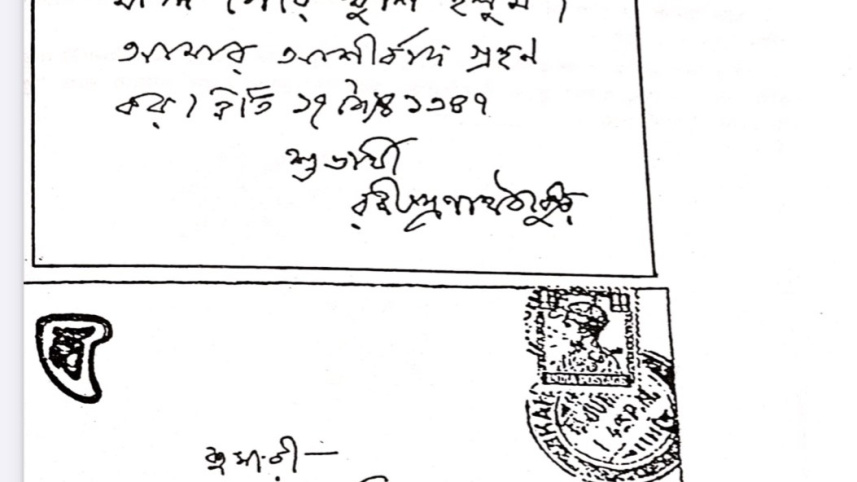 পেয়ে খুশি হলুম।
আমার আশীর্বাদ গ্রহণ
কর। ইতি ১৭ পৌষ ১৩৪৭
শুভার্থী
রবীন্দ্রনাথ ঠাকুর
INDIA POSTAGE
1.45 P.M
কুমারী—